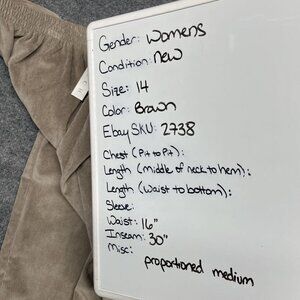 Gender: Womens
Condition: New
Size: 14
Color: Brown
Ebay SKU: 2738
Chest (Pit to Pit):
Length (middle of neck to hem):
Length (Waist to bottom):
Sleeve:
Waist: 16"
Inseam: 30"
Misc:
proportioned medium